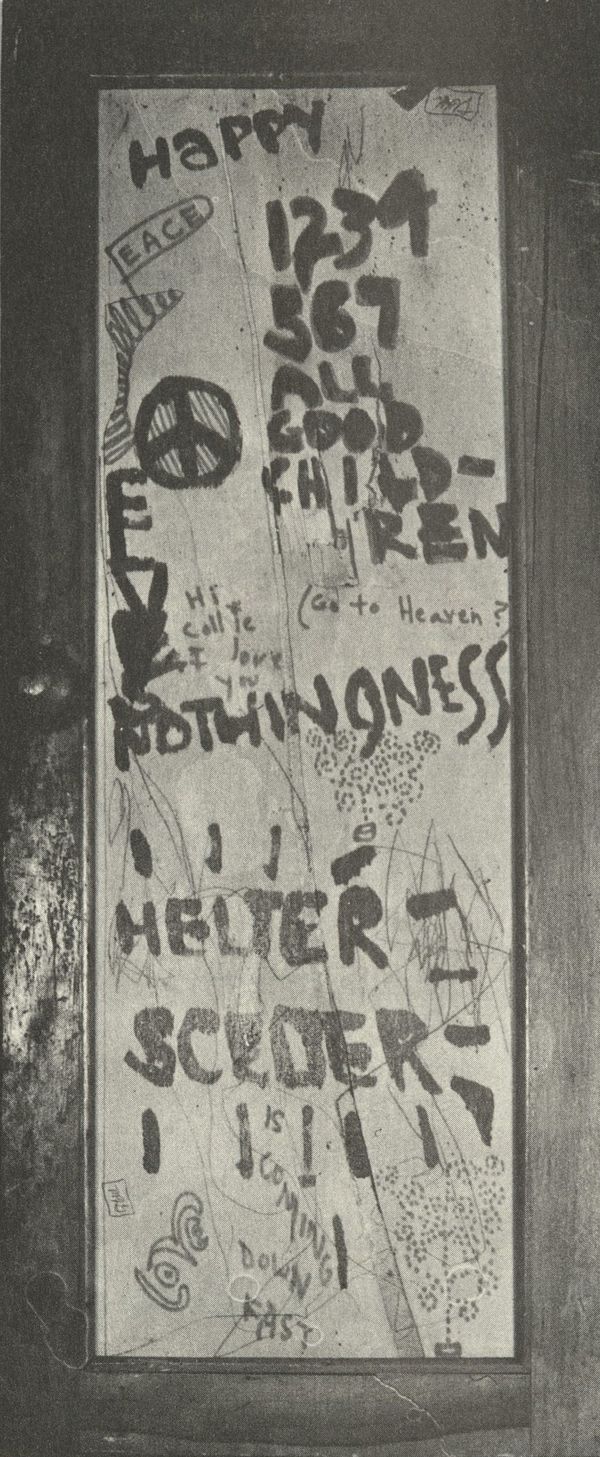 HAPPY
EACE
1234
567
ALL
GOOD
CHILD-
REN
(Go to Heaven?
Hi
I love
you
NOTHINGNESS
HELTER
SCELTER
IS
COMING
DOWN
FAST